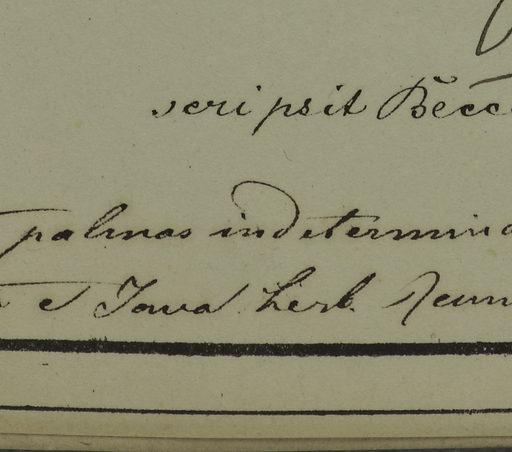 scripsit Becc
palmas indetermina
e Java herb.